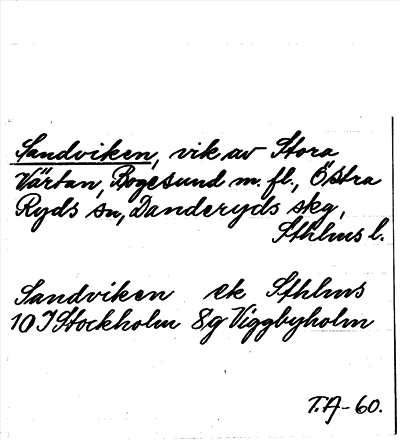 Sandviken, vik av Stora
Värtan, Bogesund m. fl., Östra
Ryds sn, Danderyds skg,
Sthlms l.
Sandviken ek Sthlms
10 I Stockholm 8g Viggbyholm
T.A-60.